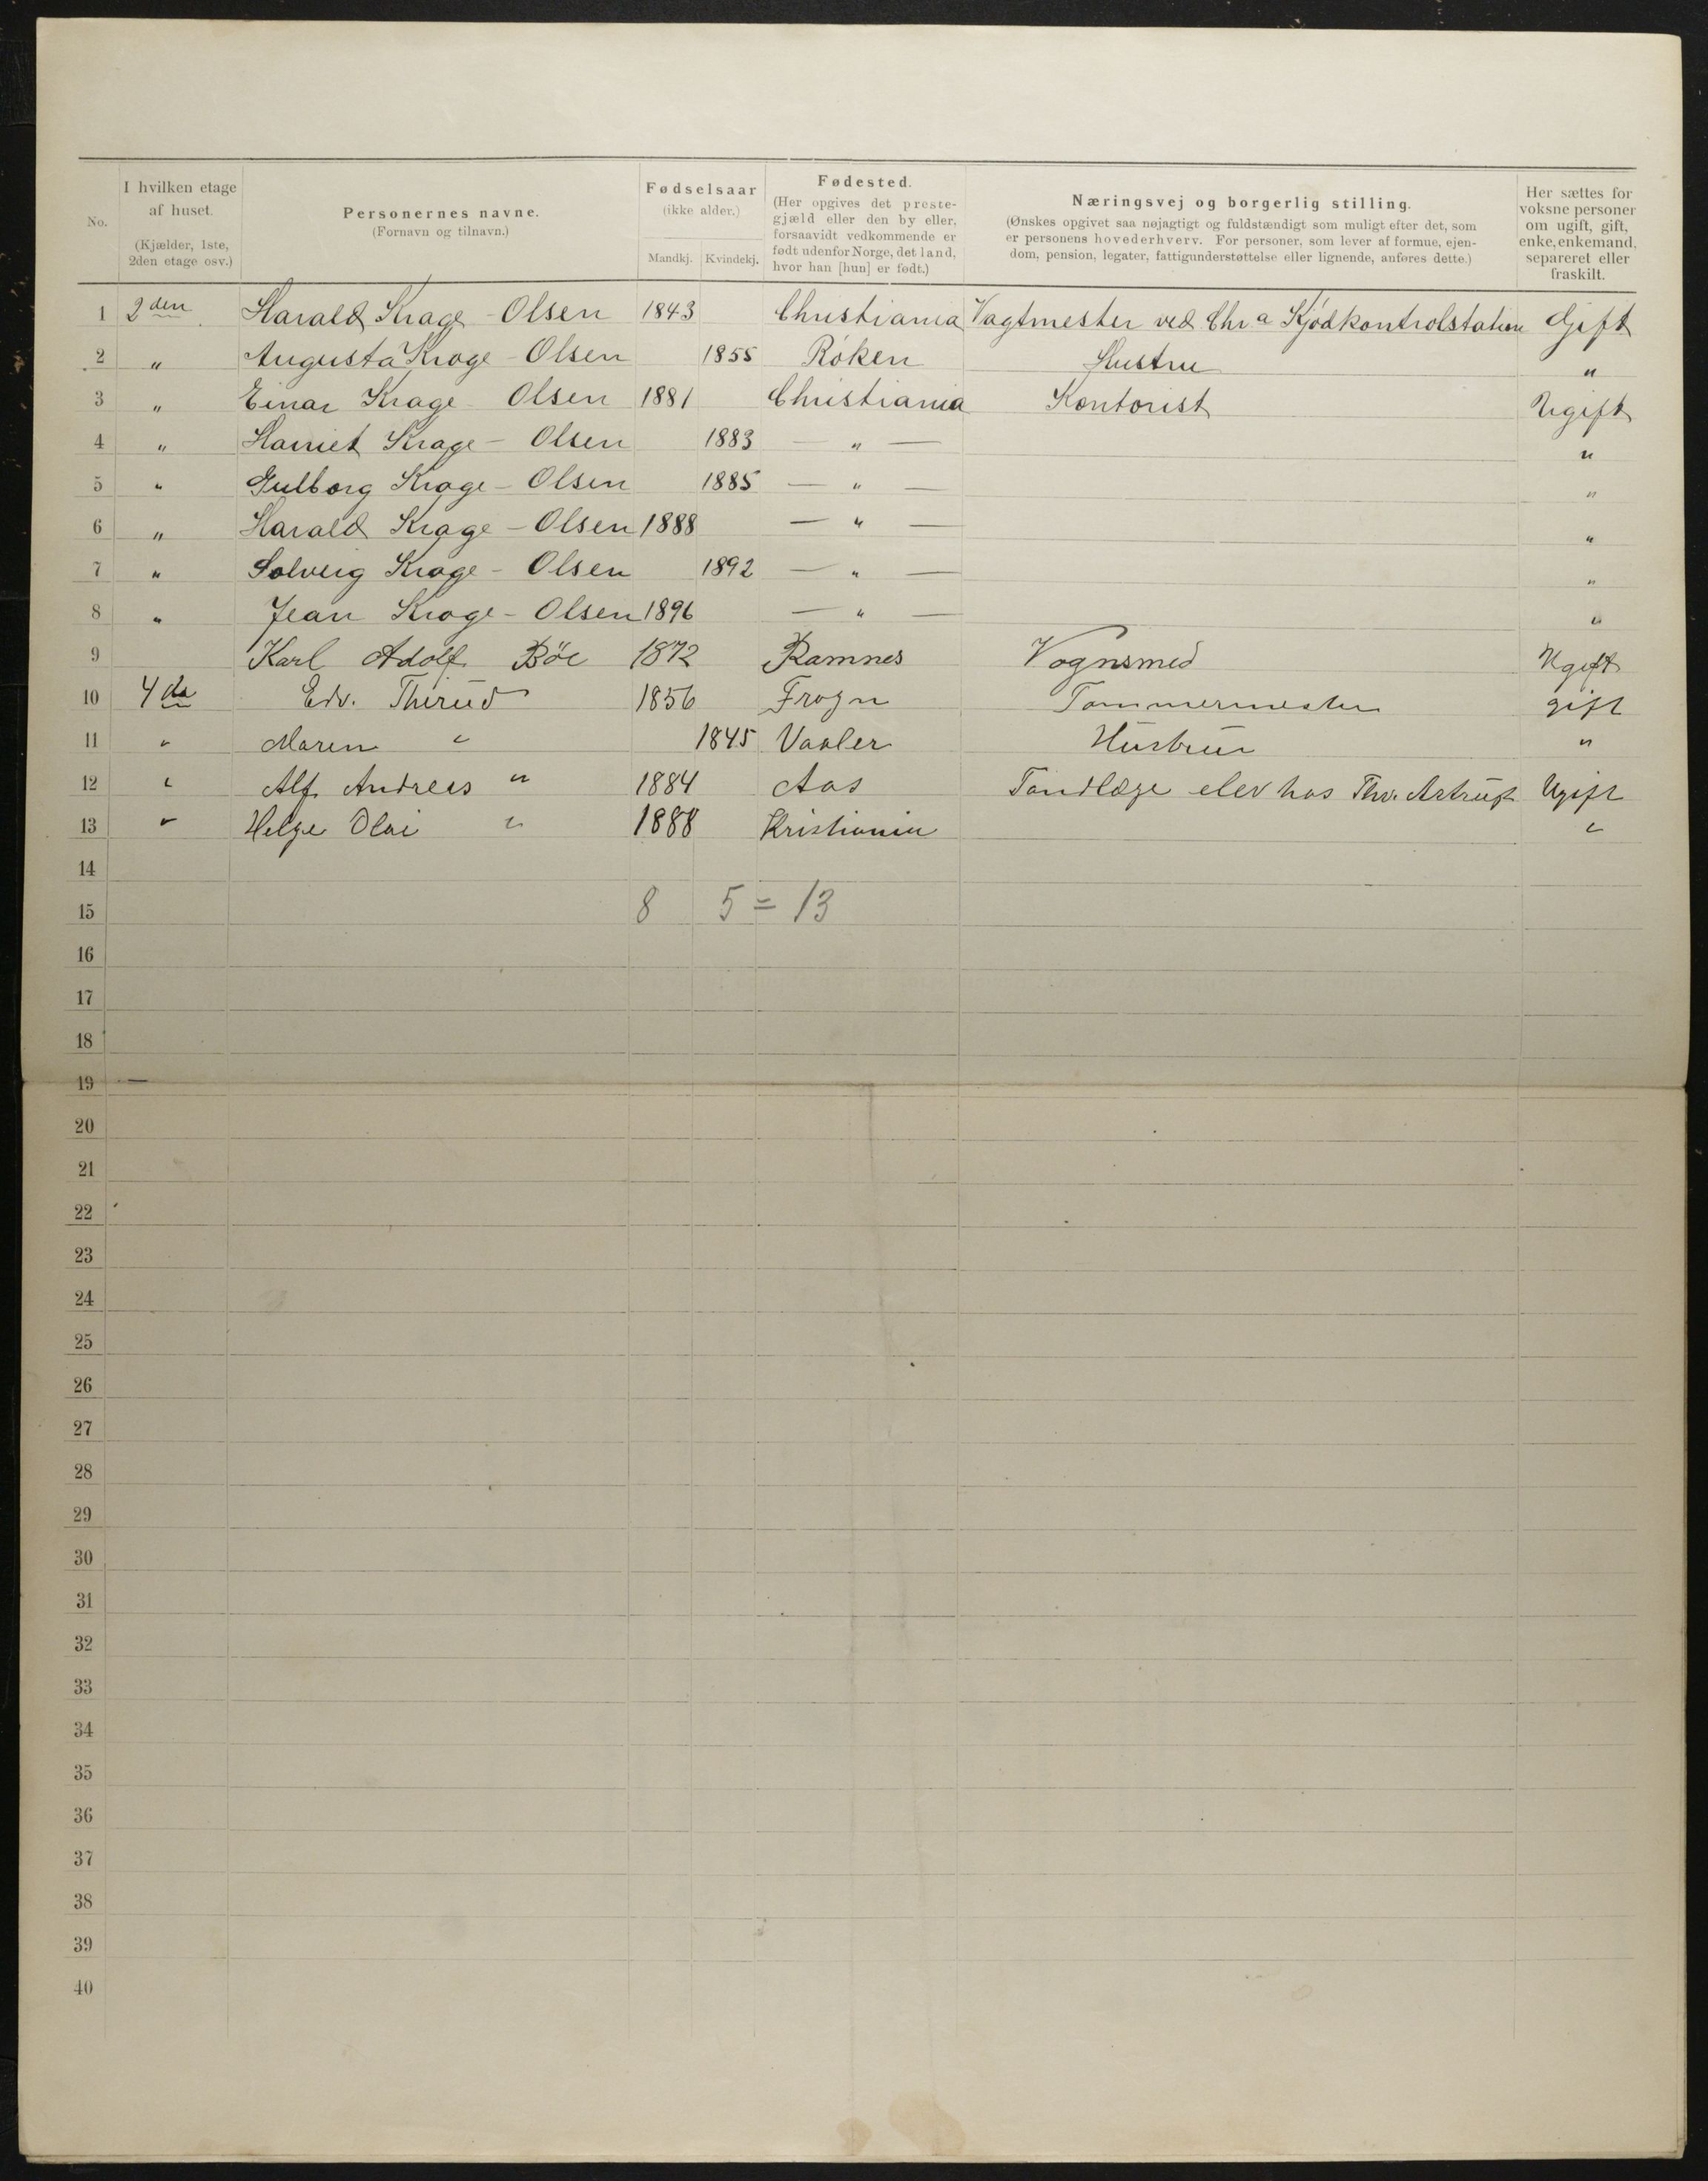 No. | I hvilken etage af huset. (Kjælder, 1ste, 2den etage osv.) | Personernes navne. (Fornavn og tilnavn.) | Fødselsaar (ikke alder.) Mandkj. Kvindekj. | Fødested. (Her opgives det prestegjæld eller den by eller, forsaavidt vedkommende er født udenfor Norge, det land, hvor han [hun] er født.) | Næringsvej og borgerlig stilling. (Ønskes opgivet saa nøjagtigt og fuldstændigt som muligt efter det, som er personens hovederhverv. For personer, som lever af formue, ejendom, pension, legater, fattigunderstøttelse eller lignende, anføres dette.) | Her sættes for voksne personer om ugift, gift, enke, enkemand, separeret eller fraskilt.
1 2den Harald Krage-Olsen 1843 Christiania Vagtmester ved Chr.a Kjødkontrolstation Gift
2 " Augusta Krage-Olsen 1855 Røken Hustru "
3 " Einar Krage Olsen 1881 Christiania Kontorist Ugift
4 " Harriet Krage-Olsen 1883 — " — "
5 " Gulborg Krage-Olsen 1885 — " — "
6 " Harald Krage-Olsen 1888 — " — "
7 " Solveig Krage-Olsen 1892 — " — "
8 " Jean Krage-Olsen 1896 — " — "
9 Karl Adolf Böe 1872 Ramnes Vognsmed Ugift
10 4de Edv. Therud 1856 Frogn Tømmermester gift
11 " Maren " 1845 Vaaler Hustru "
12 " Alf Andreas " 1884 Aas Tandlæge elev hos Thv. Astrup Ugift
13 " Helge Olai " 1888 Kristiania "
14
15 8 5 = 13
16
17
18
19 —
20
21
22
23
24
25
26
27
28
29
30
31
32
33
34
35
36
37
38
39
40